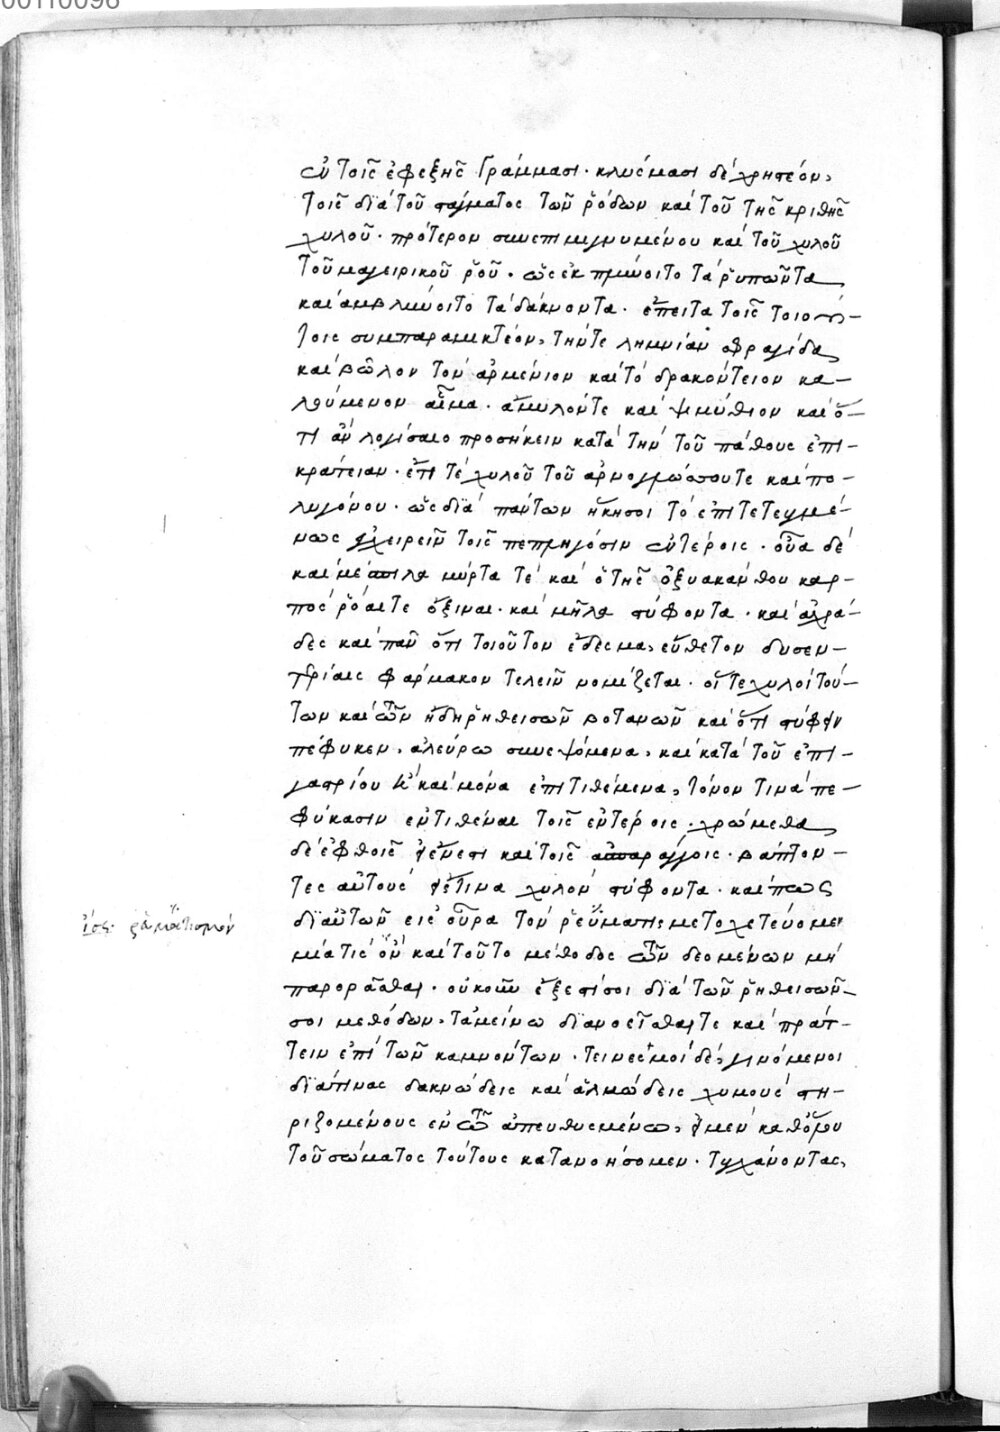 00110098
ἐν τοῖς ἐφεξῆς γράμμασι· κλύσμασι δὲ χρηστέον,
τοῖς διὰ τοῦ στάγματος τῶν ῥόδων καὶ τοῦ τῆς κριθῆς
χυλοῦ· πρότερον συνεπιμιγνυμένου καὶ τοῦ χυλοῦ
τοῦ μαγειρικοῦ ῥοῦ· ὡς ἐκπλύνοιτο τὰ ῥυπῶντα
καὶ ἀμβλύνοιτο τὰ δάκνοντα· ἔπειτα τοῖς τοιού-
τοις συμπαραμικτέον, τήν τε λημνίαν σφραγίδα
καὶ βῶλον τὸν ἀρμένιον καὶ τὸ δρακόντειον κα-
λούμενον αἷμα· ἄμυλόν τε καὶ ψιμύθιον καὶ ὅ-
τι ἂν λογίσαιο προσήκειν κατὰ τὴν τοῦ πάθους ἐπι-
κράτειαν· ἔτι τὲ χυλοῦ τοῦ ἀρνογλώσσου τε καὶ πο-
λυγόνου· ὡς διὰ πάντων ἥκῃ σοι τὸ ἐπιτετευγμέ-
νως ἐγχειρεῖν τοῖς πεπληγόσιν ἐντέροις· οὖα δὲ
καὶ μέσπιλα μύρτα τὲ καὶ ὁ τῆς ὀξυακάνθου καρ-
πὸς ῥόαι τε ὄξιναι· καὶ μῆλα στύφοντα· καὶ ἀχρά-
δες καὶ πᾶν ὅτι τοιοῦτον ἔδεσμα, εὔθετον δυσεν-
τερίαις φάρμακον τελεῖν νομίζεται· οἵ τε χυλοὶ τού-
των καὶ τῶν ἤδη ῥηθεισῶν βοτανῶν καὶ ὅτι στύφειν
πέφυκεν, ἀλεύρω συνεψόμενα, καὶ κατὰ τοῦ ἐπι-
γαστρίου καὶ μόνα ἐπιτιθέμενα, τόνον τινὰ πε-
φύκασιν ἐντιθέναι τοῖς ἐντέροις· χρώμεθα
δὲ ἑφθοῖς καὶ τοῖς ἀσπαράγγοις· βάπτον-
τες αὐτοὺς χυλὸν στύφοντα· καί πως
δι' αὐτῶν εἰς οὖρα τὸν ῥεύματι μετοχετεύομεν
μία τις οὖν καὶ τοῦτο μέθοδος τῶν δεομένων μὴ
παρορᾶσθαι· οὐκοῦν ἔξεστί σοι διὰ τῶν ῥηθεισῶν
σοι μεθόδων, τἀμείνω διανοεῖσθαί τε καὶ πράτ-
τειν ἐπὶ τῶν καμνόντων· τεινεσμοὶ δὲ, γινόμενοι
διά τινας δακνώδεις καὶ ἁλμώδεις χυμοὺς στη-
ριζομένους ἐν τῶ ἀπευθυσμένω, εἰ μὲν καθ' ὅλου
τοῦ σώματος τούτους κατανοήσομεν· τυγχάνοντας,
ἴσως ῥευματισμόν